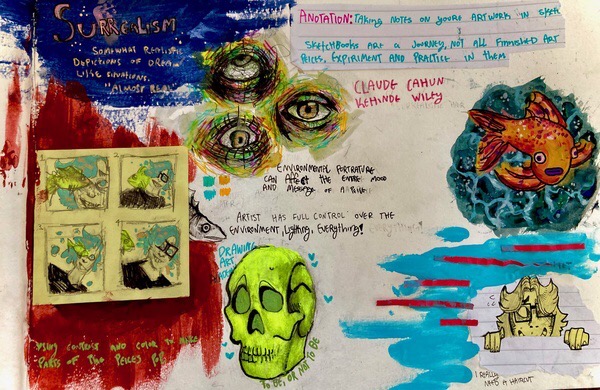 SURREALISM
SOMEWHAT REALISTIC
DEPICTIONS OF DREAM
LIKE SITUATIONS.
"ALMOST REAL"
ANOTATION: TAKING NOTES ON YOURE ARTWORK IN SKETCH
SKETCHBOOKS ARE A JOURNEY, NOT ALL FINISHED ART
PEICES, EXPIRIMENT AND PRACTICE IN THEM
CLAUDE CAHUN
KEHINDE WILEY
ENVIRONMENTAL PORTRATURE
CAN AFFECT THE ENTIRE MOOD
AND MESSAGE OF A
ARTIST HAS FULL CONTROL OVER THE
ENVIRONMENT, LIGHTING, EVERYTHING!
DRAWING
ART
USING CONTRAST AND COLOR TO MAKE
PARTS OF THE PEICES POP
TO BE, OR NOT TO BE
I REALLY
NEED A HAIRCUT